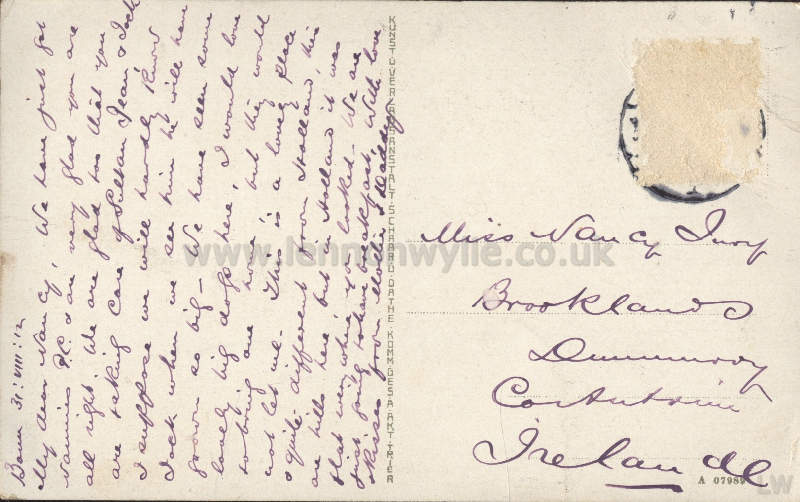 Bonn 31:VIII:12
My dear Nancy, We have just got
Nannies P.C. & are very glad you are
all right. We are glad too that you
are taking care of Sultan Jean & Jack
I suppose we will hardly know
Jack when we see him he will have
grown so big – We have seen some
lovely big dogs here, I would love
to bring one home but they would
not let me – This is a lovely place
& quite different from Holland, there
are hills here but in Holland it was
flat every where you looked – We are
just going to have breakfast, With love
& kisses from Mother & Daddy
KUNSTVERLAGSANSTALT SCHAAR & DATHE KOMM.GES.A.AKT. TRIER
Miss Nancy
Brooklands
Dunmurry
Co Antrim
Ireland
A 07989
www.lennonwylie.co.uk
LW